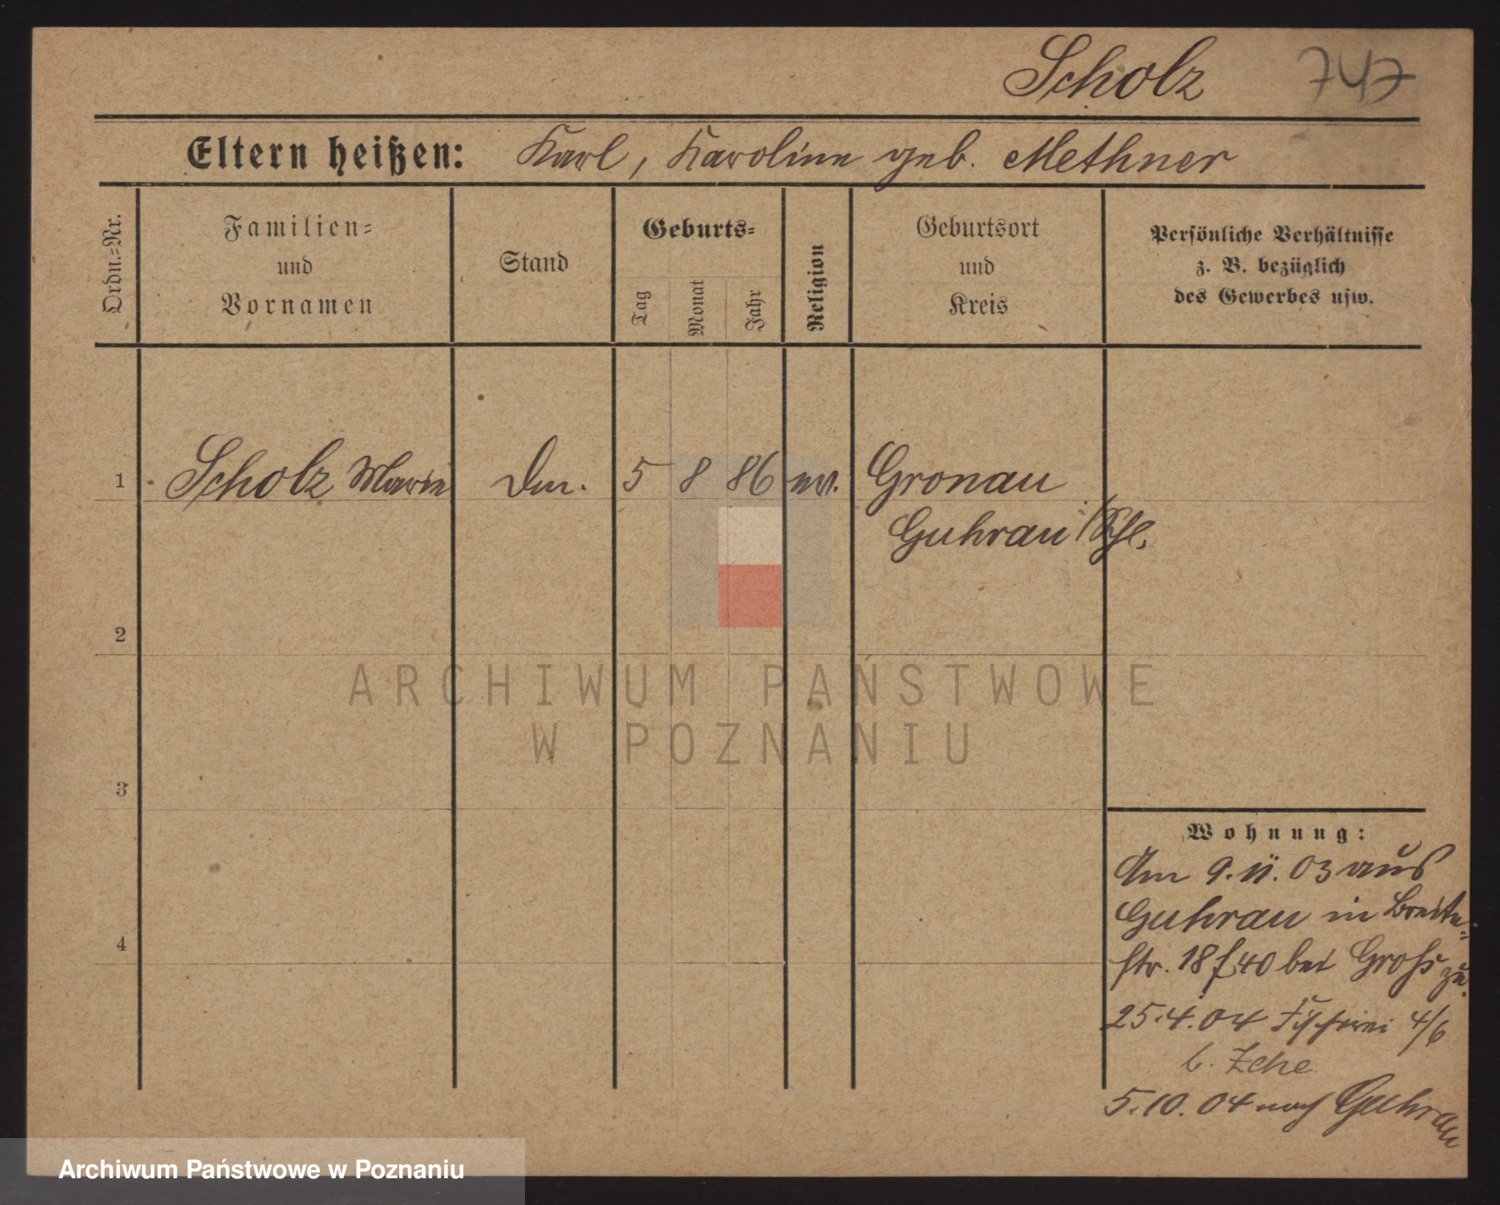 Scholz 747
Eltern heißen: Karl, Karoline geb. Methner
Ordn.=Nr.
Familien=
und
Vornamen
Stand
Geburts=
Tag
Monat
Jahr
Religion
Geburtsort
und
Kreis
Persönliche Verhältnisse
z. B. bezüglich
des Gewerbes usw.
1 Scholz Marie 5 8 86 ev. Gronau
Guhrau i/Schl.
2
3
4
ARCHIWUM PAŃSTWOWE
W POZNANIU
Wohnung:
Am 9.11.03 aus
Guhrau in Breite-
str. 18 bei Groß zu.
25.4.04 Fischerei 4/6
b. Zche
5.10.04 nach Guhrau
Archiwum Państwowe w Poznaniu